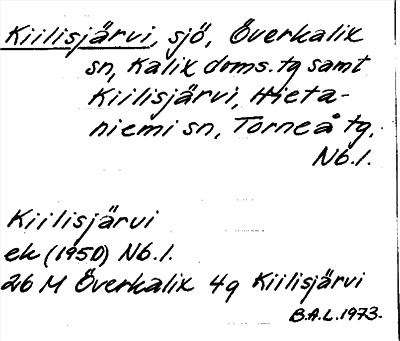 Kiilisjärvi, sjö, Överkalix
sn, Kalix doms. tg samt
Kiilisjärvi, Hieta-
niemi sn, Torneå tg,
Nb.l.
Kiilisjärvi
ek (1950) Nb.l.
26 M Överkalix 4g Kiilisjärvi
B.A.L. 1973.